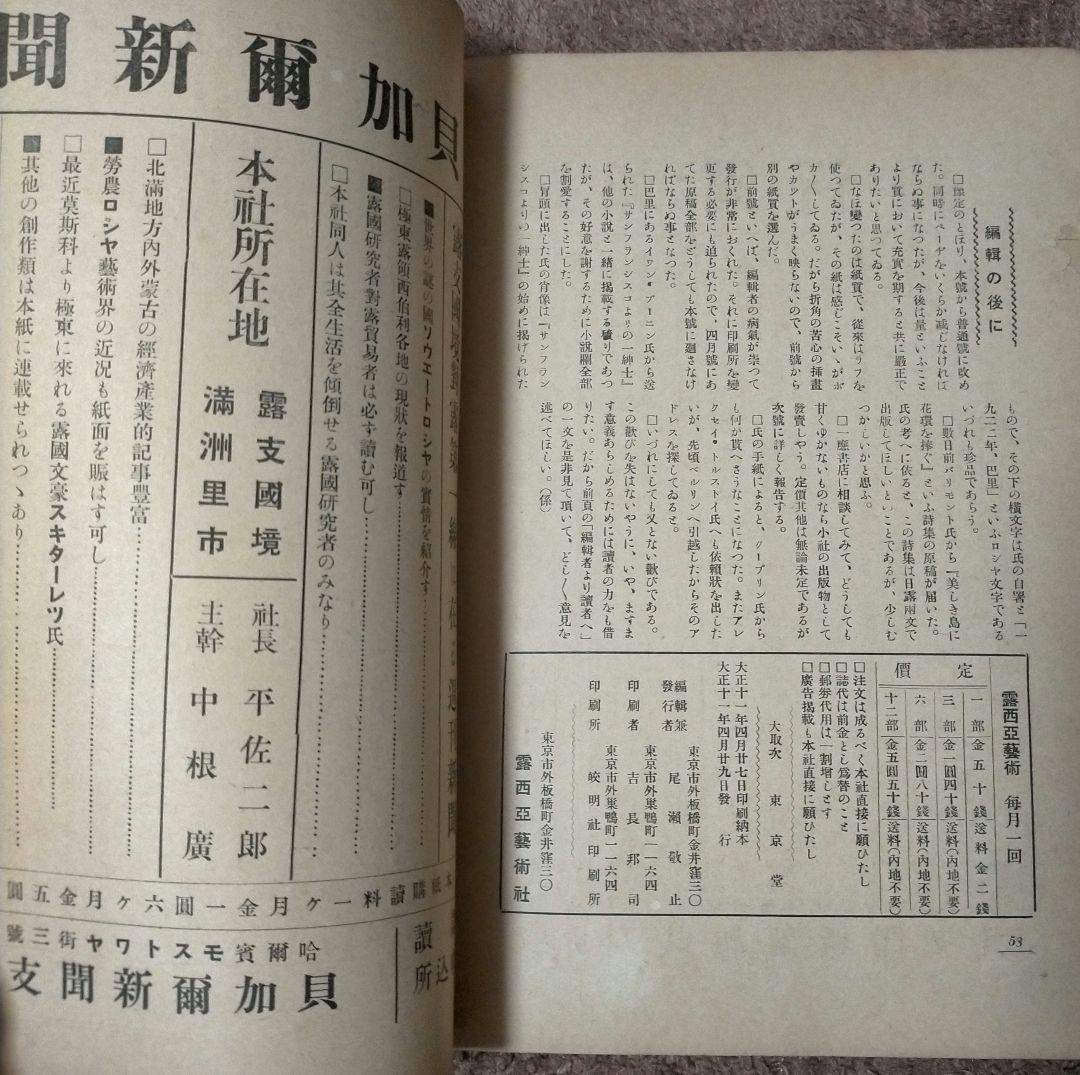 編輯の後に
□豫定のとほり、本號から普通號に改め
た。同時にページをいくらか減じなければ
ならぬ事になつたが、今後は量といふこと
より質において充實を期すると共に嚴正で
ありたいと思つてゐる。
□なほ變つたのは紙質で、從來はラフを
使つてゐたが、その紙は感じこそいゝがボ
カ〱してゐる。だから折角の苦心の挿畫
やカツトがうまく映らないので、前號から
別の紙質を選んだ。
□前號といへば、編輯者の病氣が祟つて
發行が非常におくれた。それに印刷所を變
更する必要にも迫られたので、四月號にあ
てた原稿全部をどうしても本號に廻さなけ
ればならぬ事となつた。
□巴里にあるイワン・ブーニン氏から送
られた『サンフランシスコよりの一紳士』
は、他の小説と一緒に掲載する積りであつ
たが、その好意を謝するために小説欄全部
を割愛することにした。
□冒頭に出した氏の肖像は『サンフラン
シスコよりの一紳士』の始めに掲げられた
もので、その下の横文字は氏の自署と「一
九二二年、巴里」といふロシヤ文字である
いづれも珍品であらう。
□數日前バリモント氏から『美しき島に
花環を捧ぐ』といふ詩集の原稿が届いた。
氏の考へに依ると、この詩集は日露兩文で
出版してほしいとのことであるが、少しむ
つかしいかと思ふ。
□一應書店に相談してみて、どうしても
甘くゆかないものなら小社の出版物として
發賣しやう。定價其他は無論未定であるが
次號に詳しく報告する。
□氏の手紙によると、クープリン氏から
も何か貰へさうなことになつた。またアレ
クセイ・トルストイ氏へも依頼狀を出した
いが、先頃ベルリンへ引越したからそのア
ドレスを探してゐると。
□いづれにしても又とない歡びである。
この歡びを失はないやうに、いや、ますま
す意義あらしめるためには讀者の力をも借
りたい。だから前頁の「編輯者より讀者へ」
の一文を是非見て頂いて、どし〱意見を
述べてほしい。(係)
露西亞藝術 毎月一回
定價
一部 金五十錢 送料金二錢
三部 金一圓四十錢 送料(内地不要)
六部 金二圓八十錢 送料(内地不要)
十二部 金五圓五十錢 送料(内地不要)
□注文は成るべく本社直接に願ひたし
□誌代は前金とし爲替のこと
□郵劵代用は一割增しとす
□廣告掲載も本社直接に願ひたし
大取次 東京堂
大正十一年四月廿七日印刷納本
大正十一年四月廿九日發行
東京市外板橋町金井窪三〇
編輯兼發行者 尾瀬敬止
東京市外巢鴨町一一六四
印刷者 吉長邦司
東京市外巢鴨町一一六四
印刷所 皎明社印刷所
東京市外板橋町金井窪三〇
露西亞藝術社
53
貝加爾新聞
■世界の謎の國ソウエートロシヤの實情を紹介す
□極東露領西伯利各地の現狀を報道す
■露國研究者對露貿易者は必す讀む可し
□本社同人は其全生活を傾倒せる露國研究者のみなり
本社所在地
露支國境
滿洲里市
社長 平佐二郎
主幹 中根廣
□北滿地方内外蒙古の經濟產業的記事豐富
■勞農ロシヤ藝術界の近況も紙面を賑はす可し
□最近莫斯科より極東に來れる露國文豪スキターレツ氏
■其他の創作類は本紙に連載せられつゝあり
本紙購讀料一ケ月金一圓六ケ月金五圓
哈爾賓モストワヤ街三號
貝加爾新聞支